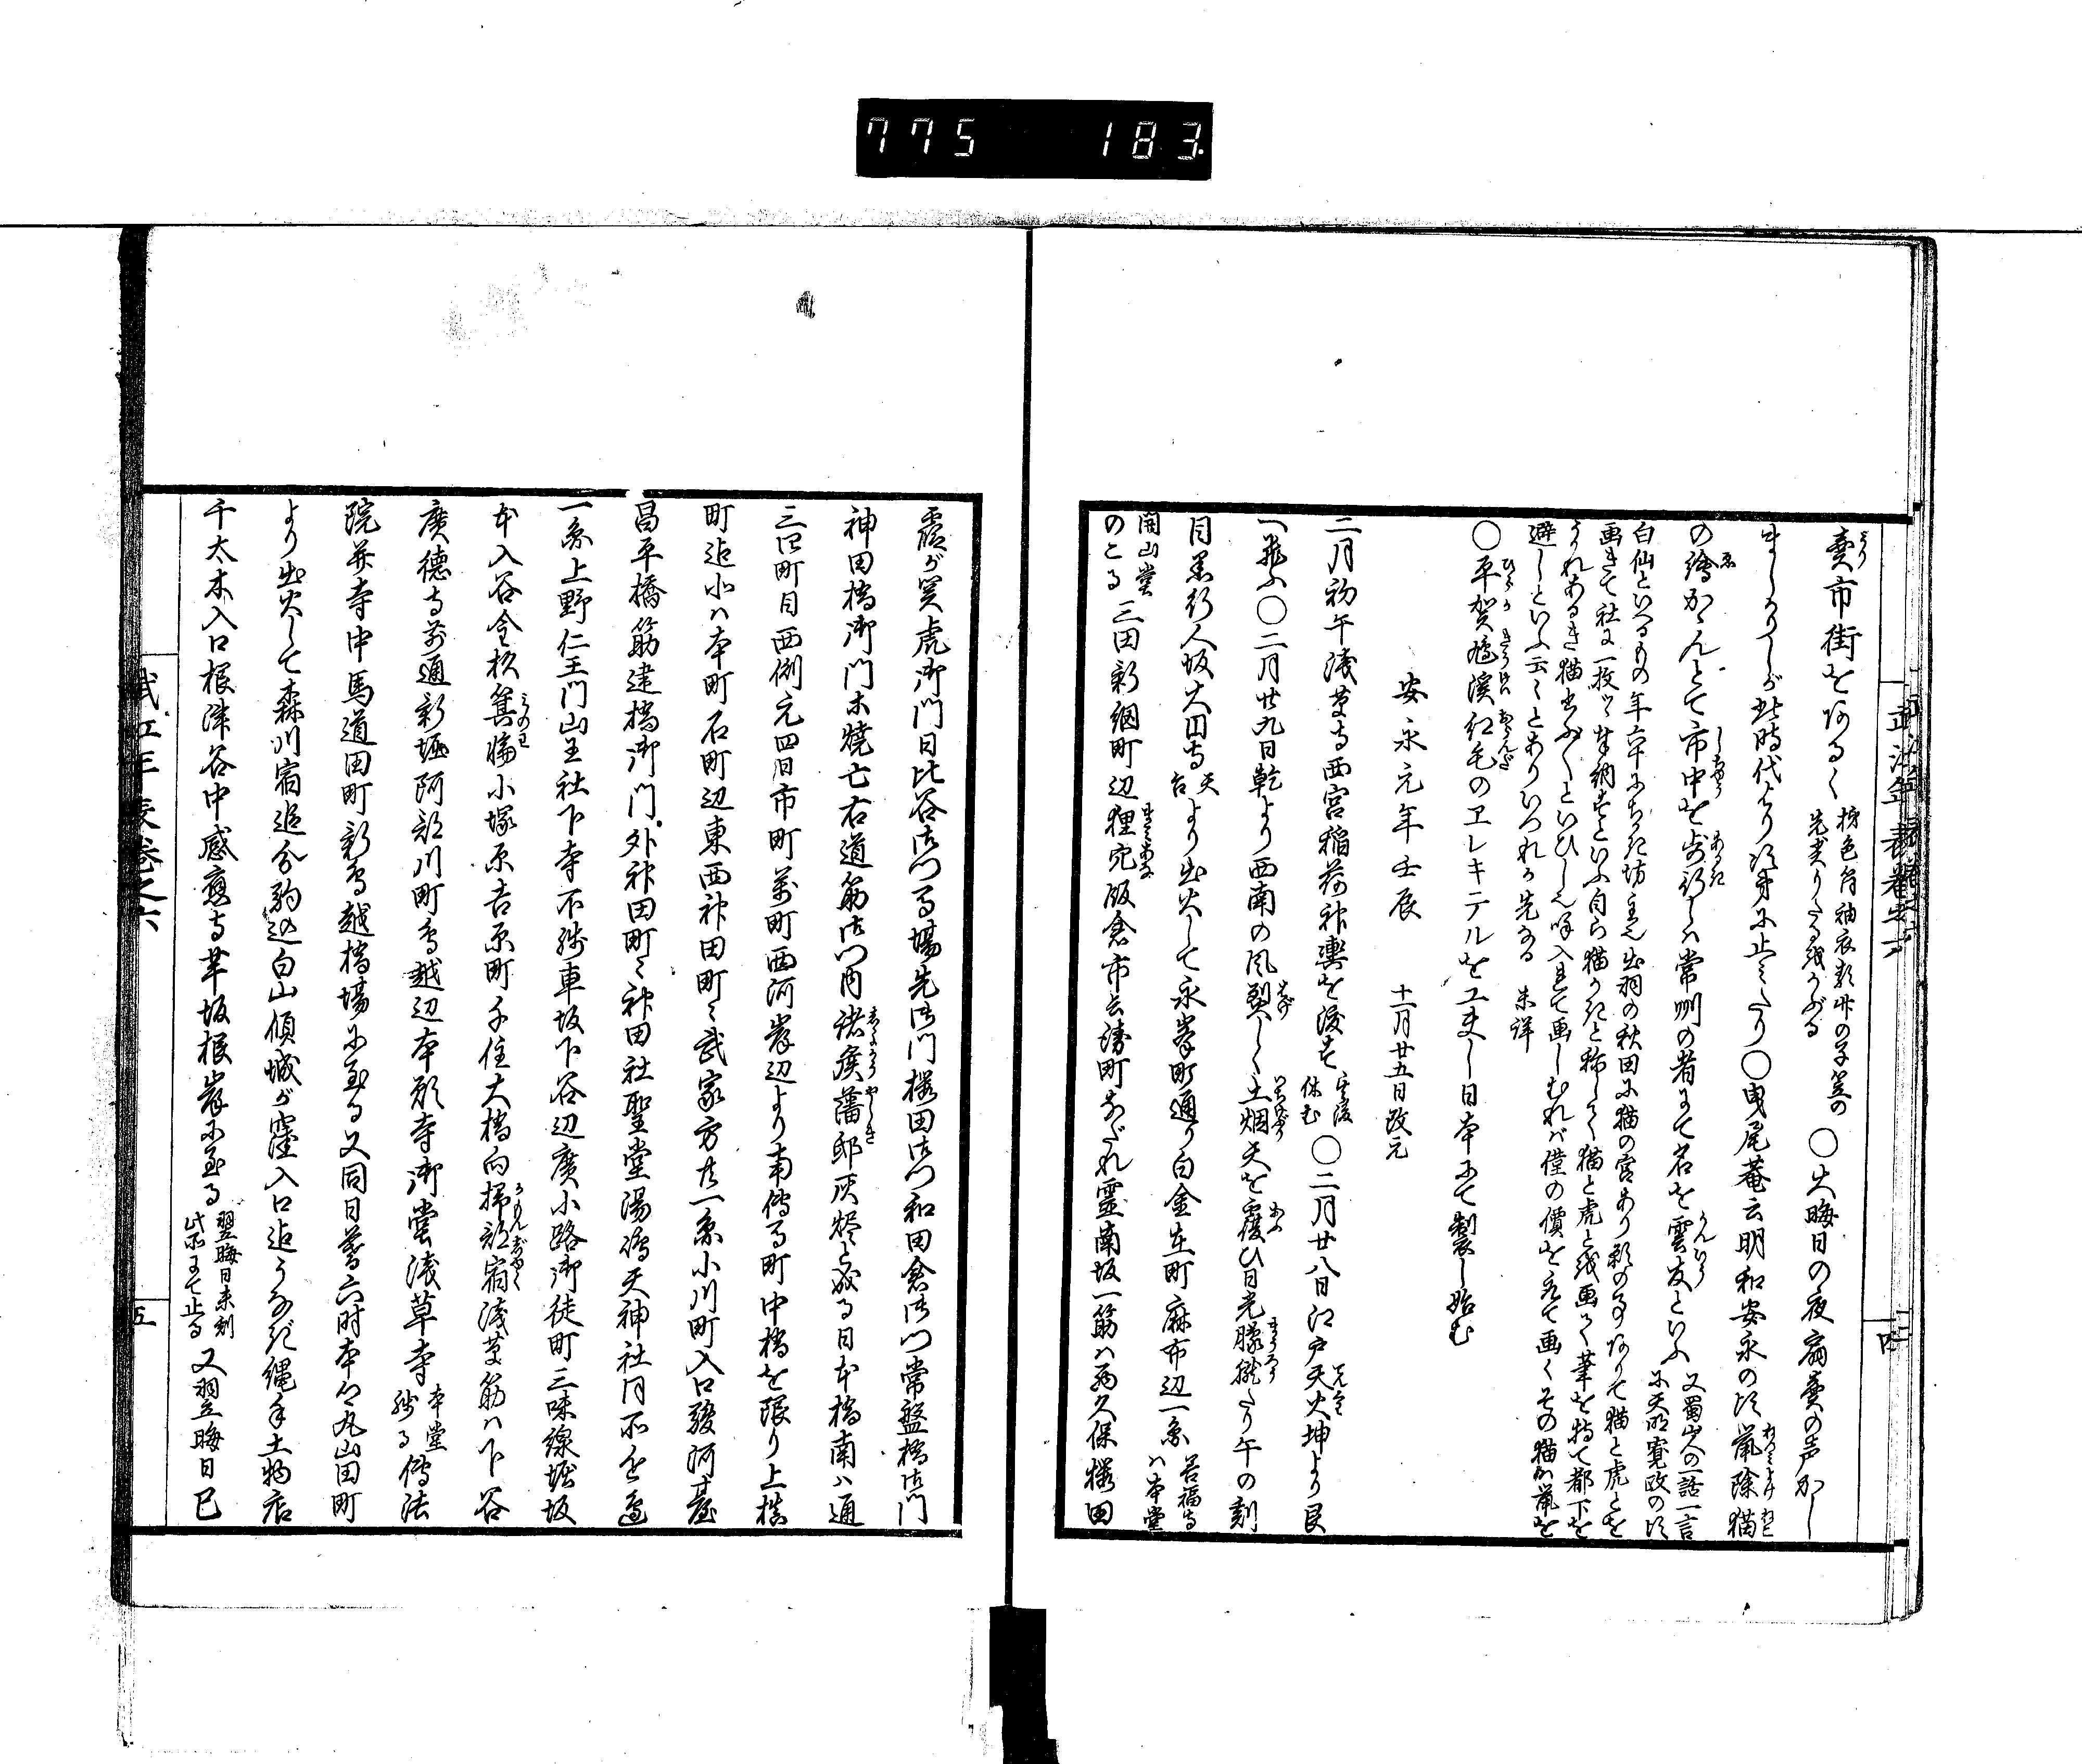 775 183
賣市街をあるく 柿色角袖衣類竹の子笠の
先尖りたる紙をかぶる 〇大晦日の夜扇賣の声かし
ましかりしが此時代より次第に止ミたり〇曳尾菴云明和安永の頃鼠除猫
の繪かゝんとて市中を歩行しハ常州の者にて名を雲友といふ 又蜀山人の一話一言
に天明寛政の頃
白仙といへるもの年六十にちかき坊主也出羽の秋田に猫の宮あり願の事ありて猫と虎とを
画きて社に一枚ツヽ奉納すといふ自ら猫かきと称して猫と虎とを画く筆を持て都下を
うかれあるき猫書ふ〱といひしを呼入れて画しむれバ僅の價を乞て画くその猫か鼠を
避しといふ云々とありいつれか先なる 未詳
〇平賀鳩溪紅毛のヱレキテルを工夫し日本にて製し始む
安永元年壬辰 十一月廿五日改元
二月初午浅草寺西宮稲荷神輿を渡す 其後
休む 〇二月廿八日江戸大火坤より艮
一飛ふ〇二月廿九日乾より西南の風烈しく土烟天を覆ひ日光朦朧たり午の刻
目黒行人坂大圓寺 天
台 より出火して永峯町通り白金在町麻布辺一糸 善福寺
ハ本堂
開山堂
のこる 三田新網町辺狸穴飯倉市兵衛町なだれ霊南坂一筋ハ西久保桜田
霞が関虎御門日比谷御門馬場先御門桜田御門和田倉御門常盤橋御門
神田橋御門末焼亡右道筋御門内諸侯藩邸灰燼と成る日本橋南ハ通
三四町目西側元四日市町萬町西河岸辺より南傳馬町中橋を限り上槙
町迄北ハ本町石町辺東西神田町々武家方共一糸小川町入口駿河臺
昌平橋筋違橋御門外神田町々神田社聖堂湯嶋天神社同所を過
一糸上野仁王門山王社下寺不残車坂下谷辺廣小路御徒町三味線堀坂
本入谷金杉簑輪小塚原吉原町千住大橋向掃部宿浅草筋ハ下谷
廣徳寺前通新堀阿部川町鳥越辺本願寺御堂浅草寺 本堂
残る 傳法
院并寺中馬道田町新鳥越橋場に至る又同日暮六時本郷丸山田町
より出火して森川宿追分駒込白山傾城が窪入口迄うなぎ縄手土物店
千太木入口根津谷中感應寺芋坂根岸に至る 翌晦日未刻
此所にて止る 又翌晦日巳
武江年表巻之六
五